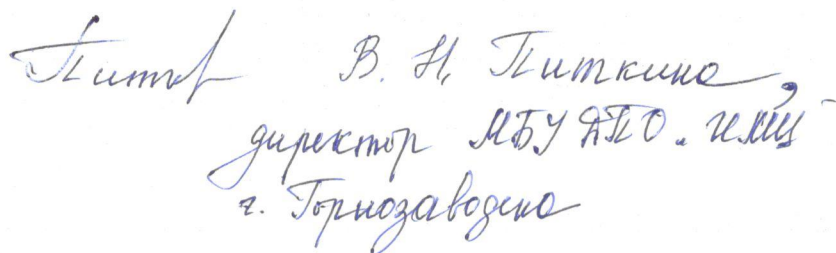 Питк В. Н. Питкина,
директор МБУ ДПО "ИМЦ"
г. Горнозаводска